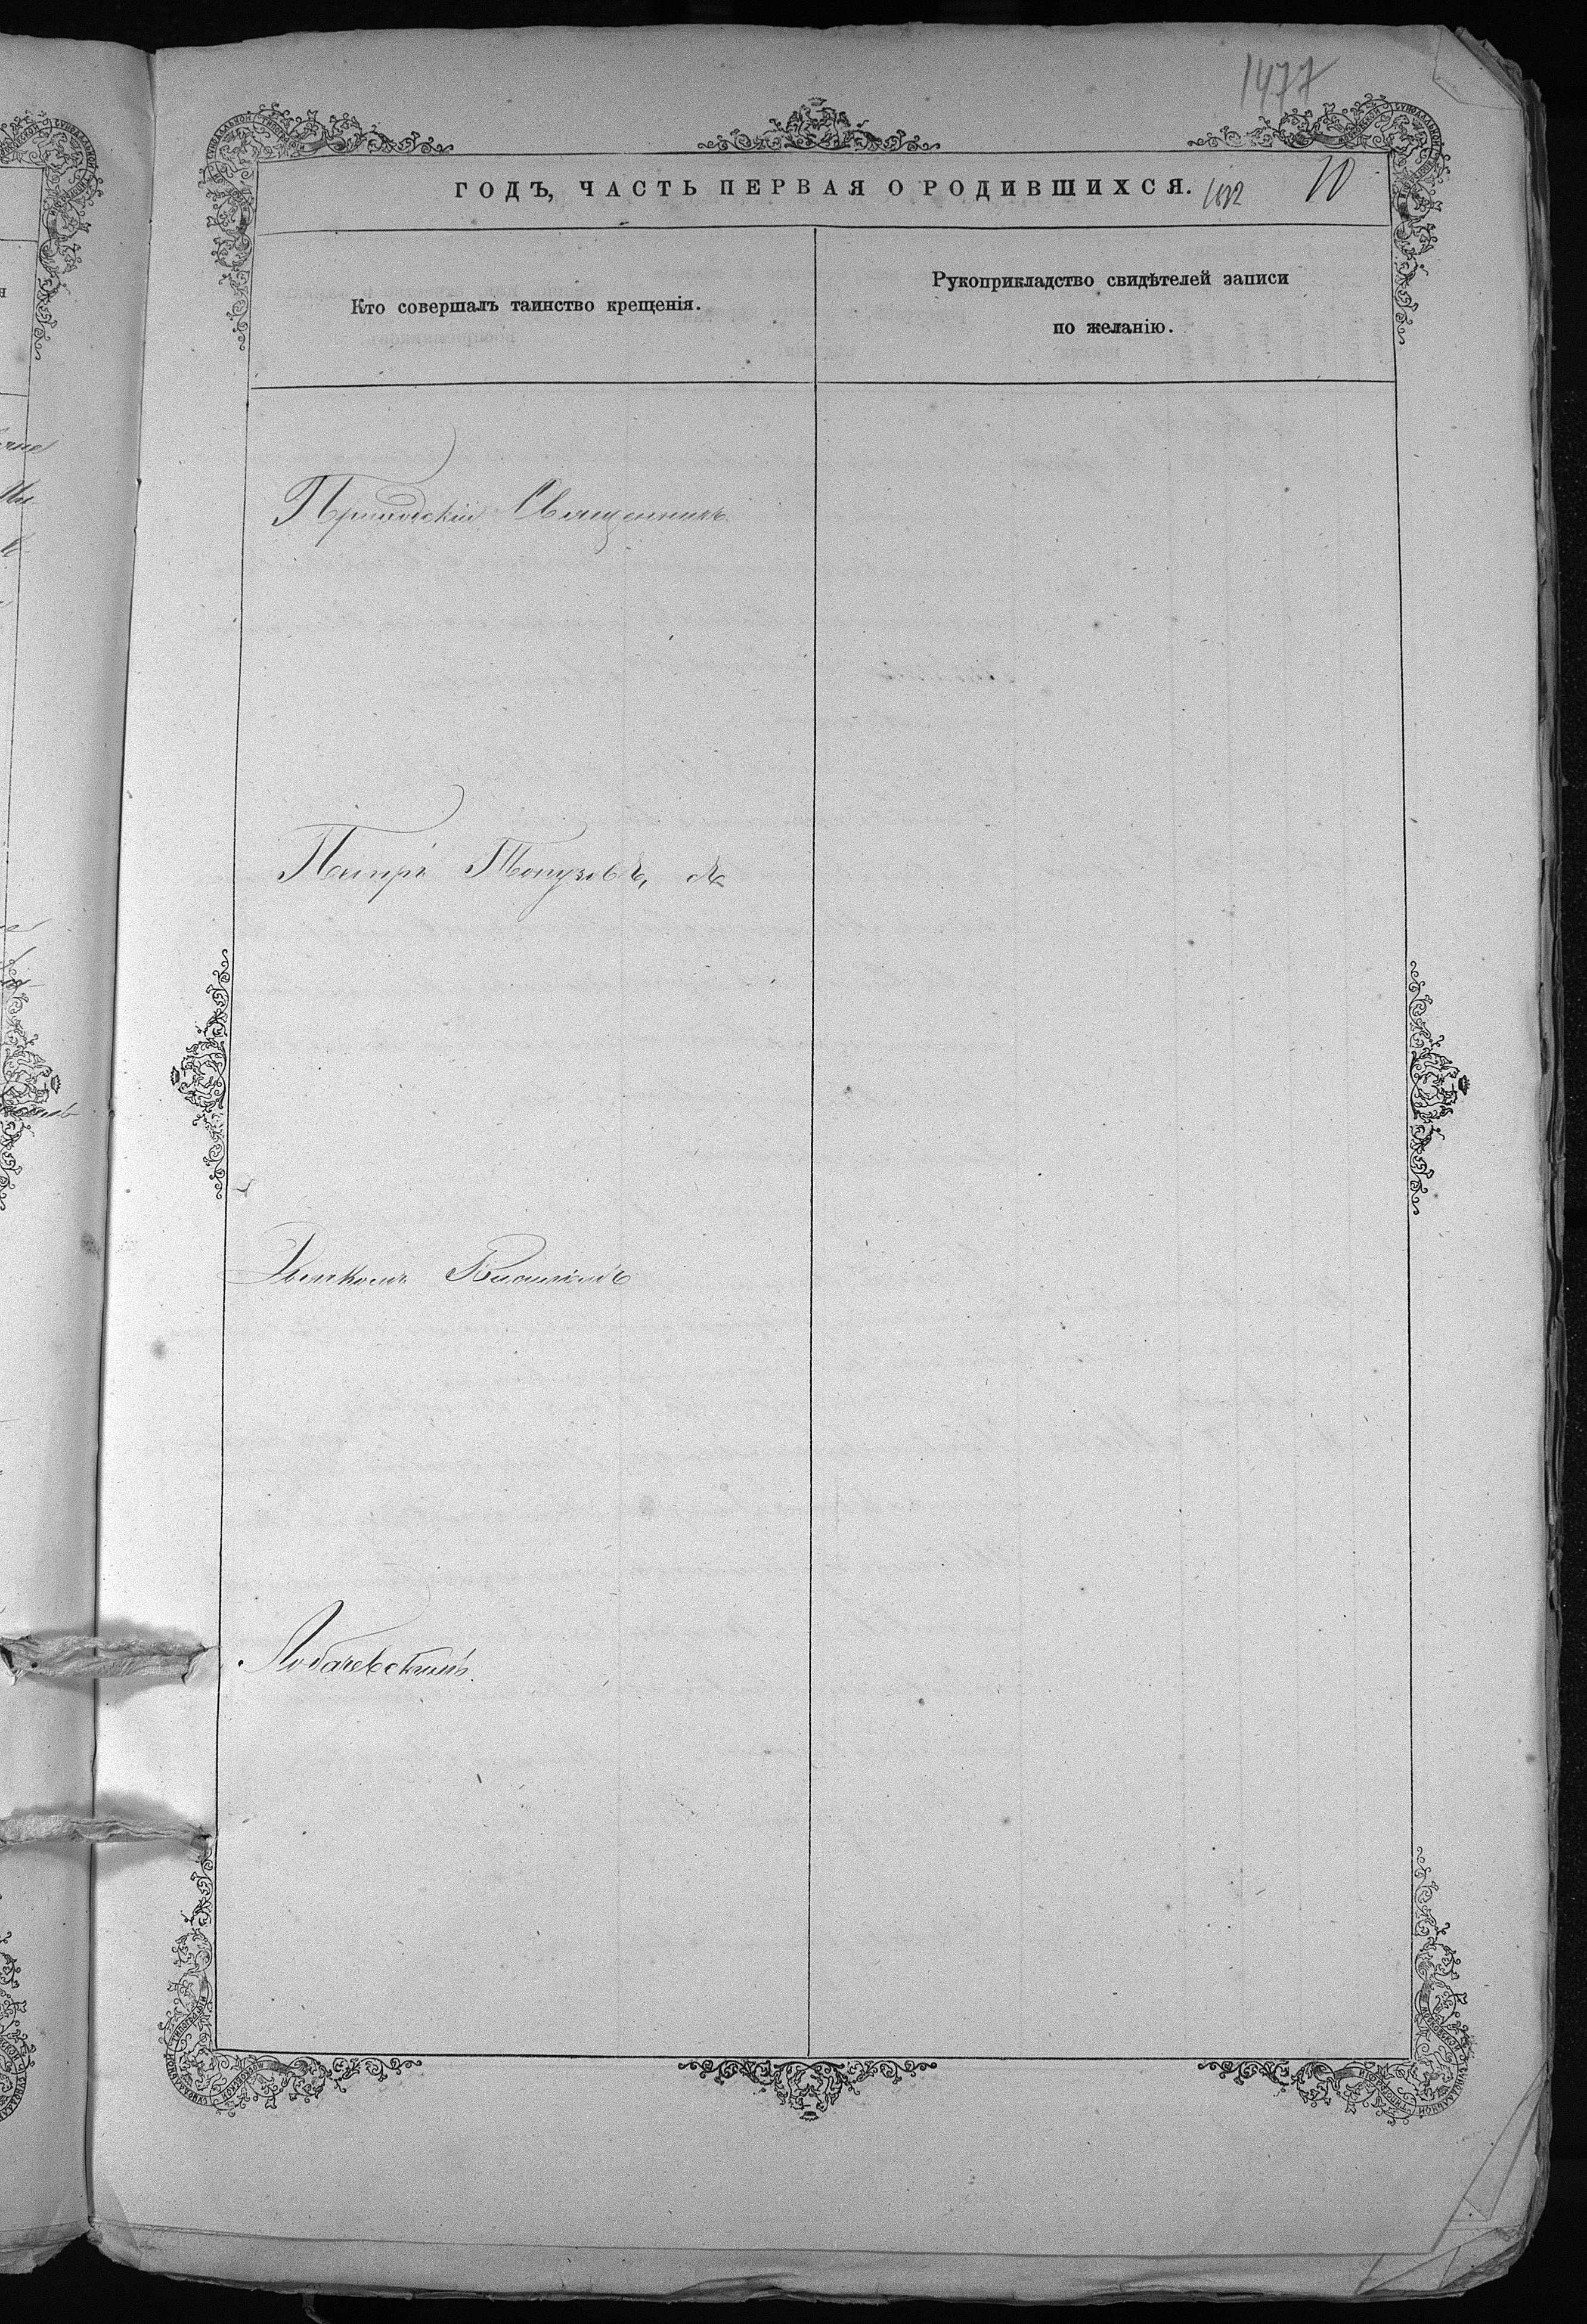 1477
ГОДЪ, ЧАСТЬ ПЕРВАЯ О РОДИВШИХСЯ.
10
Кто совершалъ таинство крещенія.
Рукоприкладство свидѣтелей записи
по желанію.
Приходскій Священникъ
Петръ съ
Дьякомъ Василіемъ
Лобачевскимъ.